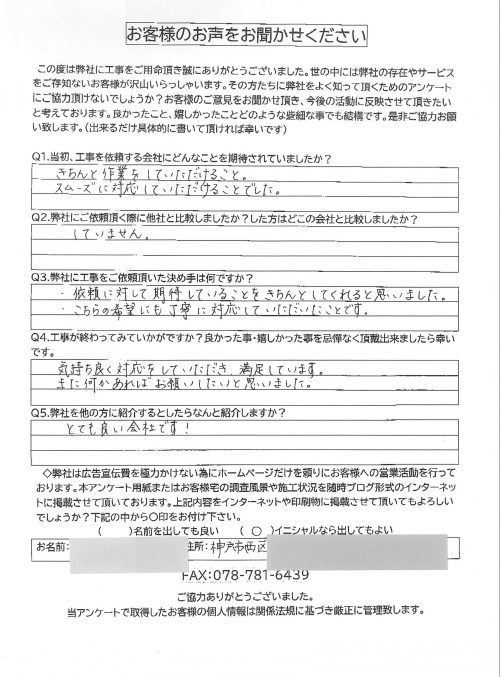 お客様のお声をお聞かせください
この度は弊社に工事をご用命頂き誠にありがとうございました。世の中には弊社の存在やサービス
をご存知ないお客様が沢山いらっしゃいます。その方たちに弊社をよく知って頂くためのアンケート
にご協力頂けないでしょうか？お客様のご意見をお聞かせ頂き、今後の活動に反映させて頂きたい
と考えております。良かったこと、嬉しかったことどのような些細な事でも結構です。是非ご協力お願
い致します。（出来るだけ具体的に書いて頂ければ幸いです）
Q1.当初、工事を依頼する会社にどんなことを期待されていましたか？
きちんと作業をしていただけること。
スムーズに対応していただけることでした。
Q2.弊社にご依頼頂く際に他社と比較しましたか？した方はどこの会社と比較しましたか？
していません。
Q3.弊社に工事をご依頼頂いた決め手は何ですか？
・依頼に対して期待していることをきちんとしてくれると思いました。
・こちらの希望にも丁寧に対応していただいたことです。
Q4.工事が終わってみていかがですか？良かった事・嬉しかった事を忌憚なく頂戴出来ましたら幸い
です。
気持ち良く対応をしていただき、満足しています。
また何かあればお願いしたいと思いました。
Q5.弊社を他の方に紹介するとしたらなんと紹介しますか？
とても良い会社です！
◇弊社は広告宣伝費を極力かけない為にホームページだけを頼りにお客様への営業活動を行って
おります。本アンケート用紙またはお客様宅の調査風景や施工状況を随時ブログ形式のインターネッ
トに掲載させて頂いております。上記内容をインターネットや印刷物に掲載させて頂いてもよろしい
でしょうか？下記の中から〇印をお付け下さい。
（　　）名前を出しても良い　（ ○ ）イニシャルなら出してもよい
お名前: 住所: 神戸市西区
FAX:078-781-6439
ご協力ありがとうございました。
当アンケートで取得したお客様の個人情報は関係法規に基づき厳正に管理致します。